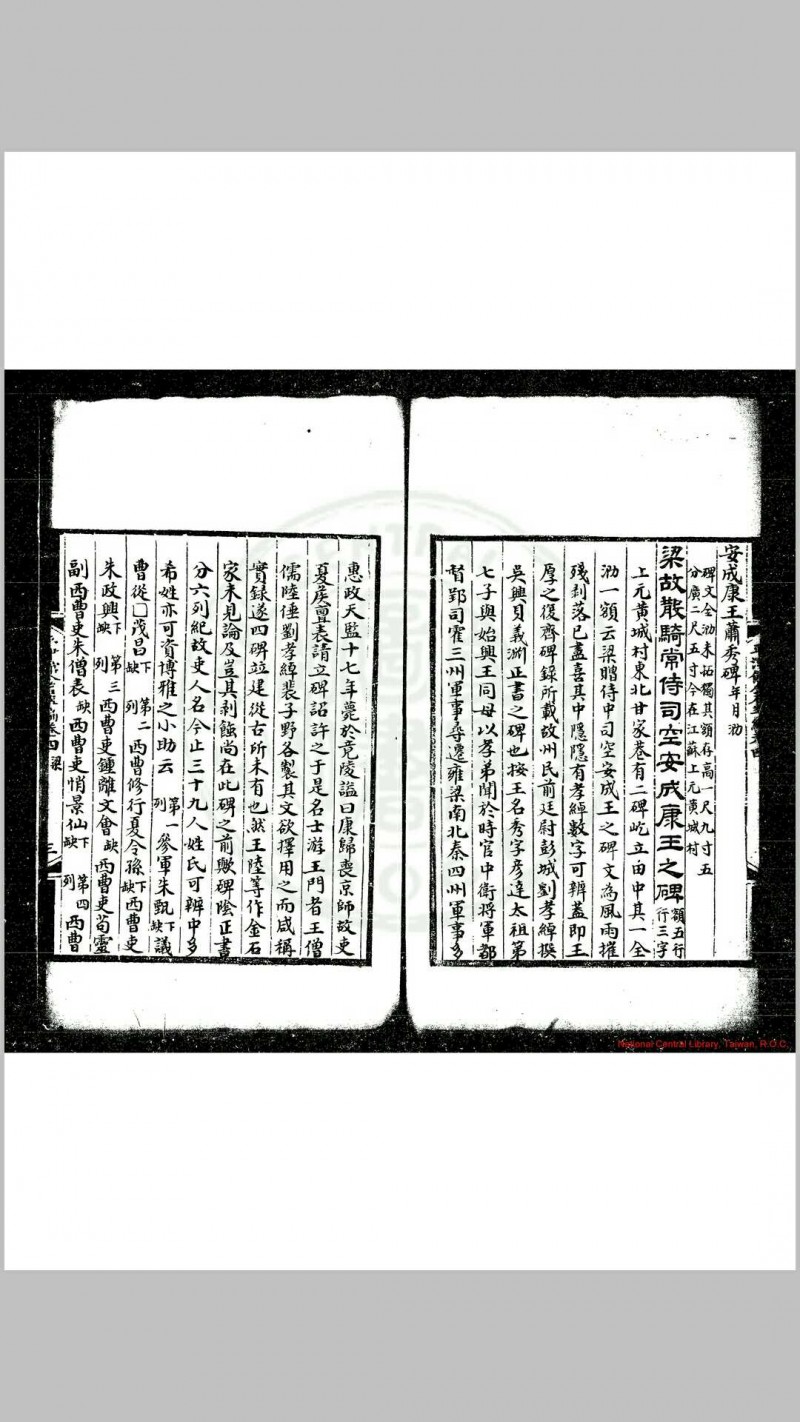 安成康王蕭秀碑年月泐
碑文全泐未拓獨其額存高一尺九寸五
分廣二尺五寸今在江蘇上元黄城村
梁故散騎常侍司空安成康王之碑額五行
行三字
上元黄城村東北甘家巷有二碑屹立由中其一全
泐一額云梁贈侍中司空安成王之碑文為風雨摧
殘剥落已盡喜其中隱隱有孝綽數字可辨盖即王
厚之復齊碑録所載故州民前廷尉彭城劉孝綽撰
吳興貝義淵正書之碑也按王名秀字彦達太祖第
七子與始興王同母以孝弟聞於時官中衛將軍都
督郢司霍三州軍事尋遷雍梁南北秦四州軍事多
惠政天監十七年薨於竟陵謚曰康歸喪京師故吏
夏侯亶表請立碑詔許之于是名士游王門者王僧
儒陸倕劉孝綽裴子野各製其文欲擇用之而咸稱
實録遂四碑竝建從古所未有也然王陸等作金石
家未見論及豈其剥蝕尚在此碑之前歟碑陰正書
分六列紀故吏人名今止三十九人姓氏可辨中多
希姓亦可資博雅之小助云 第一列 參軍朱甄下缺議
曹從□茂昌下缺 第二列 西曹修行夏令孫下缺西曹吏
朱政興下缺 第三列 西曹吏鍾離文會缺西曹吏苟靈
副西曹史朱僧表缺西曹吏悄景仙下缺 第四列 西曹
卷四梁
三
National Central Library, Taiwan, R.O.C.